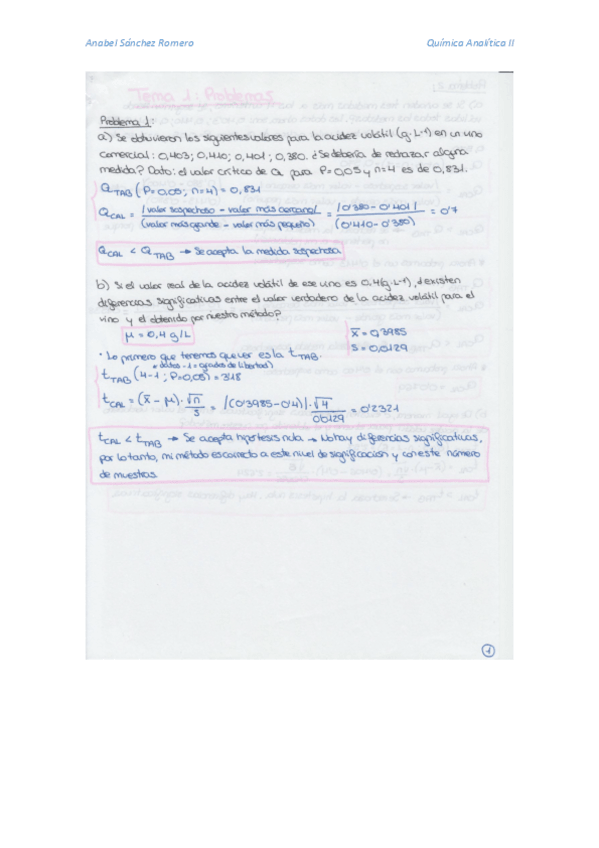 Anabel Sánchez Romero Química Analítica II
Tema 1: Problemas
Problema 1:
a) Se obtuvieron los siguientes valores para la acidez volátil (g·L-1) en un vino
comercial: 0,403; 0,410; 0,401; 0,380. ¿Se debería de rechazar alguna
medida? Dato: el valor crítico de Q para P=0,05 y n=4 es de 0,831.
Q TAB (P=0,05; n=4) = 0,831
Q CAL = |valor sospechoso - valor más cercano| / (valor más grande - valor más pequeño) = |0'380 - 0'401| / (0'410 - 0'380) = 0'7
Q CAL < Q TAB → Se acepta la medida sospechosa
b) Si el valor real de la acidez volátil de ese vino es 0.4 (g·L-1), ¿existen
diferencias significativas entre el valor verdadero de la acidez volátil para el
vino y el obtenido por nuestro método?
μ = 0,4 g/L
x̄ = 0,3985
s = 0,0129
· Lo primero que tenemos que ver es la t TAB.
* datos - 1 = grados de libertad)
t TAB (4-1; P=0,05) = 3'18
t CAL = (x̄ - μ)·√n / s = |(0'3985 - 0'4)|·√4 / 0'0129 = 0'2321
t CAL < t TAB → Se acepta hipótesis nula → No hay diferencias significativas,
por lo tanto, mi método es correcto a este nivel de significación y con este número
de muestras.
1